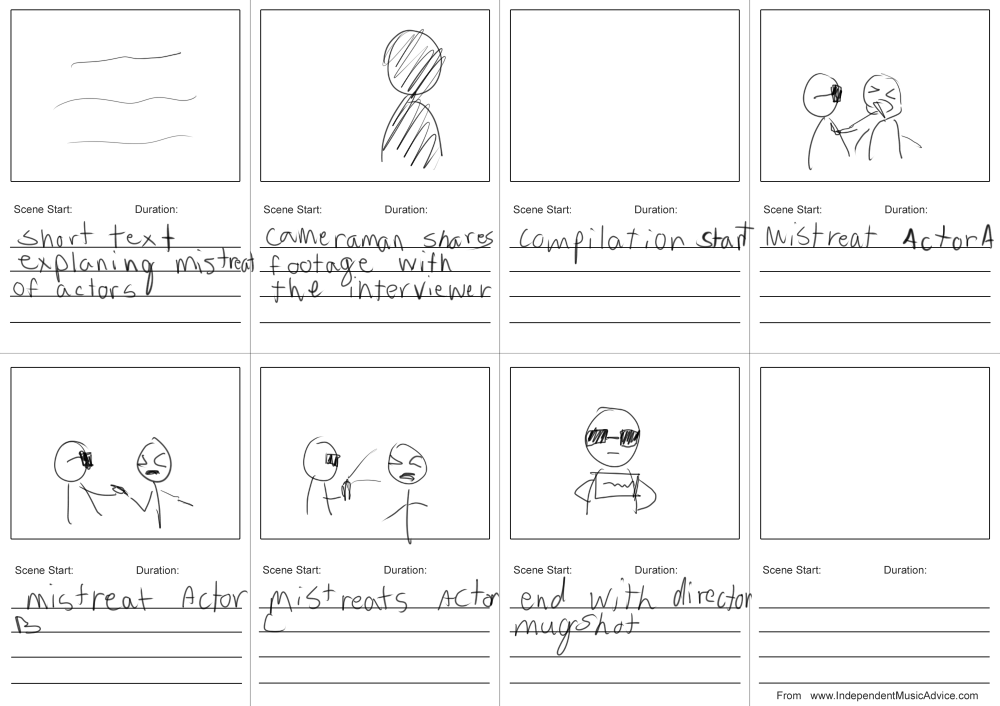 Scene Start: Duration:
short text
explaning mistreat
of actors
Scene Start: Duration:
cameraman shares
footage with
the interviewer
Scene Start: Duration:
compilation start
Scene Start: Duration:
Mistreat Actor A
Scene Start: Duration:
mistreat Actor
B
Scene Start: Duration:
Mistreats Actor
C
Scene Start: Duration:
end with director
mugshot
Scene Start: Duration:
From www.IndependentMusicAdvice.com